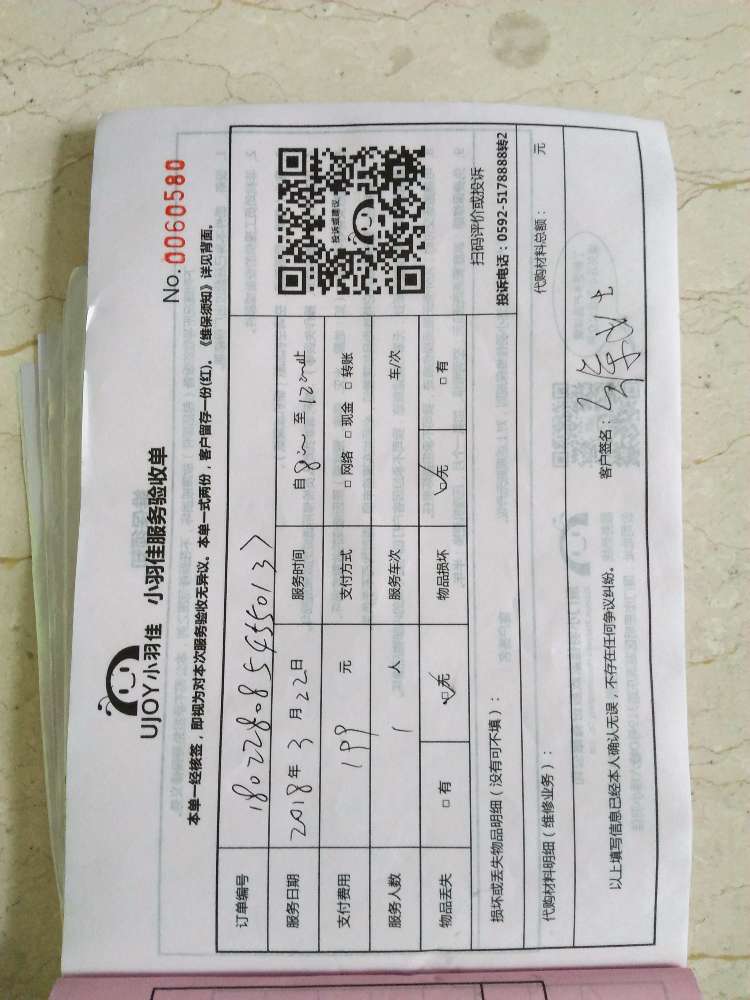 No. 0060580
UJOY小羽佳 小羽佳服务验收单
本单一经核签，即视为对本次服务验收无异议。本单一式两份，客户留存一份(红)。《维保须知》详见背面。
订单编号
服务日期 2018年3月22日 服务时间 自 至 止
支付费用 199 元 支付方式 □ 网络 □ 现金 □ 转账
服务人数 1 人 服务车次 车/次
物品丢失 □ 有 □ 无 物品损坏 □ 无 □ 有
投诉或建议
扫码评价或投诉
投诉电话：0592-5178888转2
损坏或丢失物品明细（没有可不填）：
代购材料明细（维修业务）： 代购材料总额： 元
以上填写信息已经本人确认无误，不存在任何争议纠纷。 客户签名：